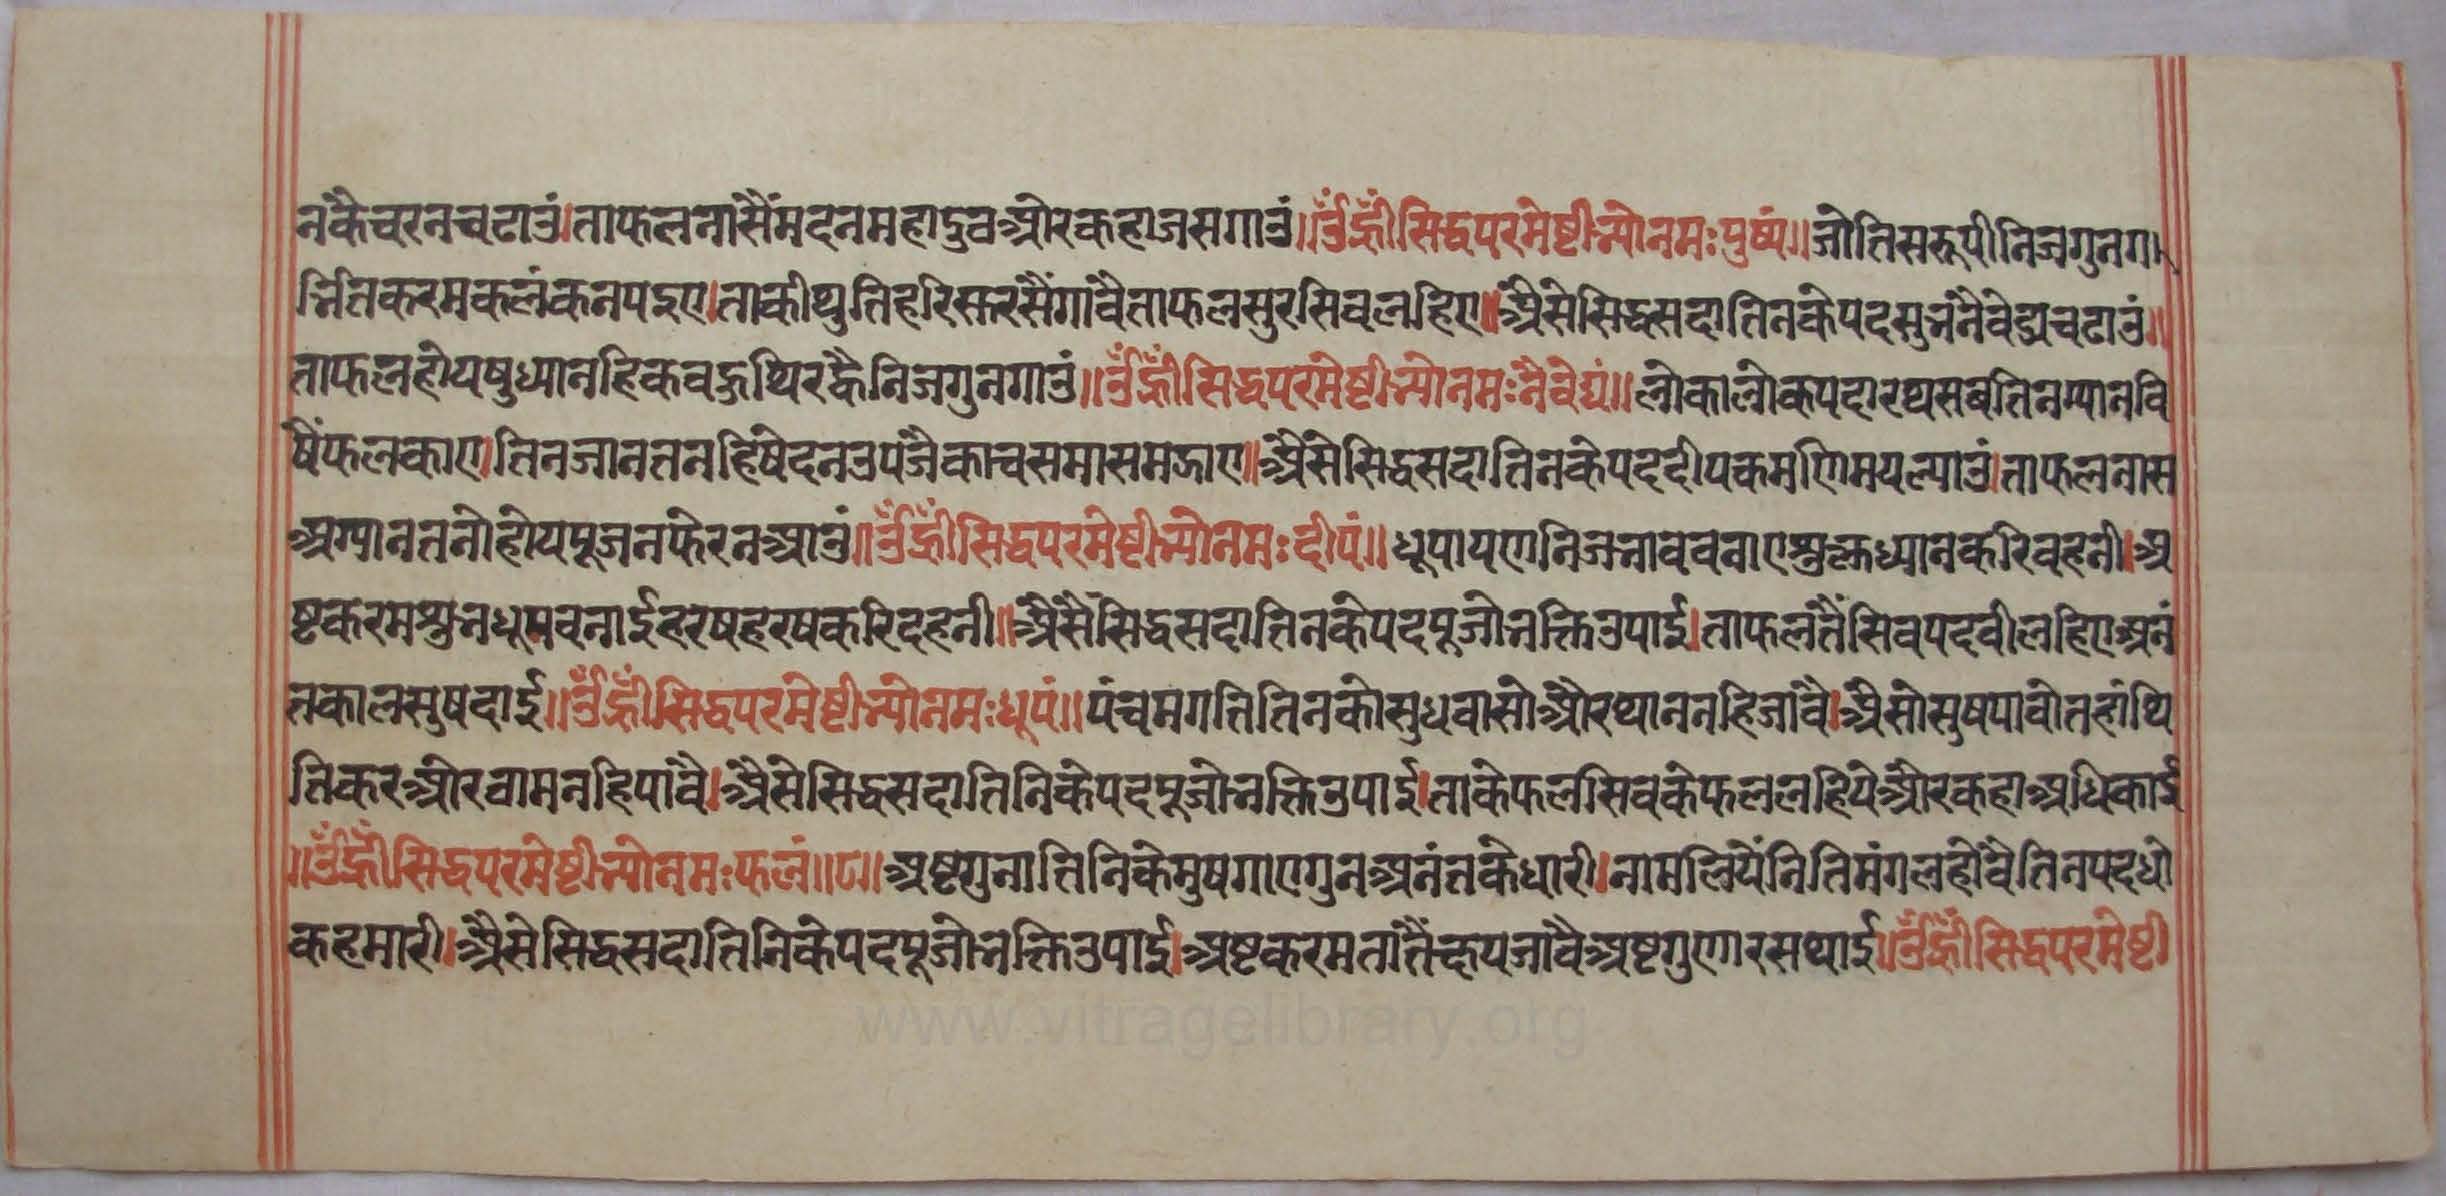 नंकैचरनचढाउं।ताफलनासैंमदनमहादुवऔरकहाजसगाउं॥ॐह्रींसिद्धपरमेष्टीभ्योनमःपुष्पं॥जोतिसरूपीनिजगुनगा
भितकरमकलंकनपइए।ताकीथुतिहरिस्करसैंगांवैताफलसुरसिवलहिए॥औसेसिद्धसदातिनकेपदसुभनैवेद्यचढाउं॥
ताफलहोयषुध्यानहिकवहुथिरह्वैनिजगुनगाउं॥ॐह्रींसिद्धपरमेष्टीभ्योनमःनैवेद्यं॥लोकालोकपदारथसबतिनग्यानवि
षैंफलकाए।तिनजानतनहिषेदनउपजैकाचसमासमजाए॥औसेसिद्धसदातिनकेपददीपकमणिमयल्याउं।ताफलनास
अग्यानतनोहोयपूजनफेरनआउं॥ॐह्रींसिद्धपरमेष्टीभ्योनमःदीपं॥धूपायणनिजभाववनाएशुक्लध्यानकरिवहनी।अ
ष्टकरमशुभधूपवनाईहरषहरषकरिदहनी॥औसैसिद्धसदातिनकेपदपूजोभक्तिउपाई।ताफलतैंसिवपदवीलहिएअनं
तकालसुषदाई॥ॐह्रींसिद्धपरमेष्टीभ्योनमःधूपं॥पंचमगतितिनकोसुधवासोऔरथाननहिजावै।औसोसुषपावोतहांथि
तिकरऔरवामनहिपांवै।औसेसिद्धसदातिनिकेपदपूजोभक्तिउपाई।ताकेफलसिवकेफललहियेऔरकहाअधिकाई
॥ॐह्रींसिद्धपरमेष्टीभ्योनमःफलं॥८॥अष्टगुनातिनिकेमुषगाएगुनअनंतकेधारी।नामलियेंनितिमंगलहोवैतिनपदधो
कहमारी।औसेसिद्धसदातिनिकेपदपूजोभक्तिउपाई।अष्टकरमतांतैंक्षयजावैअष्टगुणारसथाई॥ॐह्रींसिद्धपरमेष्टी
www.vitragelibrary.org